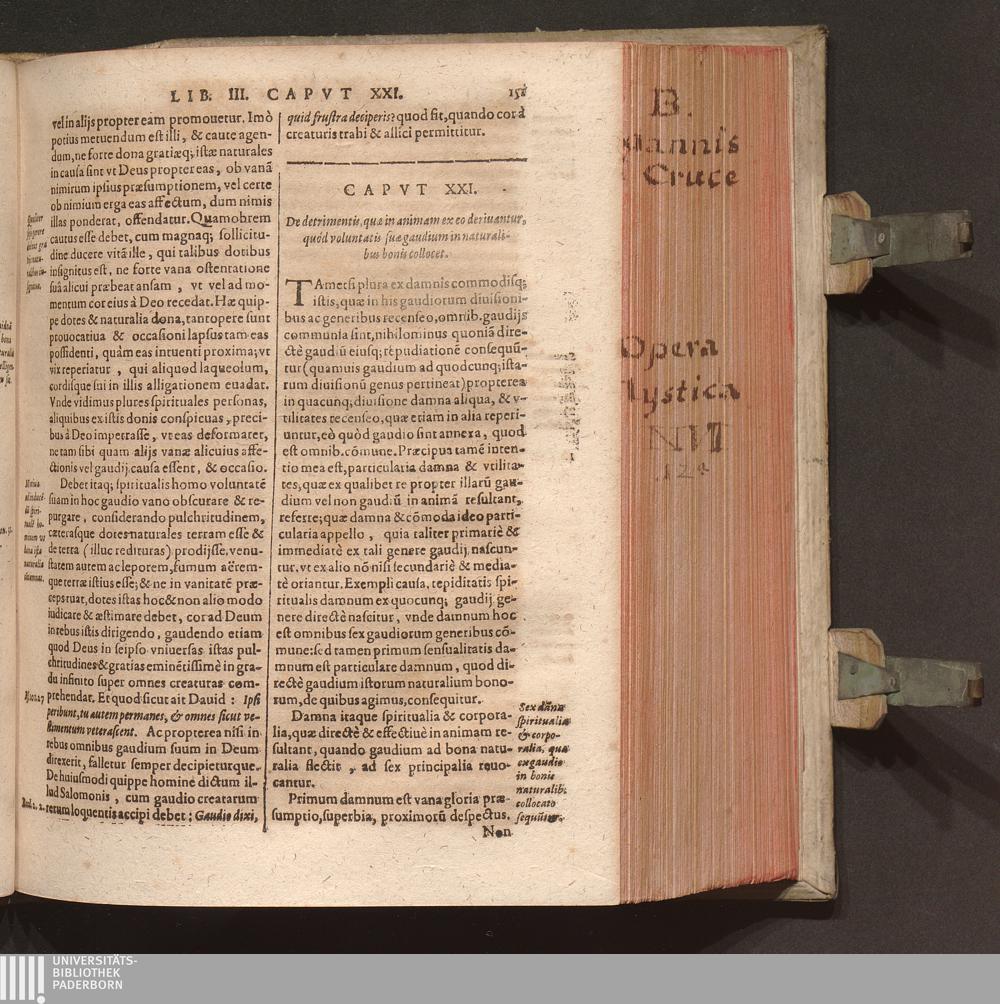 LIB. III. CAPVT XXI.
vel in alijs propter eam promouetur. Imò
potius metuendum est illi, & caute agen-
dum, ne forte dona gratiæq; istæ naturales
in causa sint vt Deus propter eas, ob vanã
nimirum ipsius præsumptionem, vel certe
ob nimium erga eas affectum, dum nimis
illas ponderat, offendatur. Quamobrem
cautus esse debet, cum magnaq; sollicitu-
dine ducere vitã ille, qui talibus dotibus
insignitus est, ne forte vana ostentatione
suâ alicui præbeat ansam, vt vel ad mo-
mentum cor eius à Deo recedat. Hæ quip-
pe dotes & naturalia dona, tantopere sunt
prouocatiua & occasioni lapsus tam eas
possidenti, quàm eas intuenti proxima; vt
vix reperiatur, qui aliquod laqueolum,
cordisque sui in illis alligationem euadat.
Vnde vidimus plures spirituales personas,
aliquibus ex istis donis conspicuas, preci-
bus à Deo impetrasse, vt eas deformaret,
ne tam sibi quam alijs vanæ alicuius affe-
ctionis vel gaudij causa essent, & occasio.
Debet itaq; spiritualis homo voluntatẽ
suam in hoc gaudio vano obscurare & re-
purgare, considerando pulchritudinem,
cæterasque dotes naturales terram esse &
de terra (illuc redituras) prodijsse, venu-
statem autem ac leporem, fumum aërem-
que terræ istius esse; & ne in vanitatẽ præ-
ceps ruat, dotes istas hoc & non alio modo
iudicare & æstimare debet, cor ad Deum
in rebus istis dirigendo, gaudendo etiam
quod Deus in seipso vniuersas istas pul-
chritudines & gratias eminẽtissimè in gra-
du infinito super omnes creaturas com-
prehendat. Et quod sicut ait Dauid: Ipsi
peribunt, tu autem permanes, & omnes sicut ve-
stimentum veterascent. Ac propterea nisi in
rebus omnibus gaudium suum in Deum
direxerit, falletur semper decipieturque.
De huiusmodi quippe homine dictum il-
lud Salomonis, cum gaudio creatarum
rerum loquentis accipi debet: Gaudio dixi,
quid frustra deciperis? quod fit, quando cor à
creaturis trahi & allici permittitur.
CAPVT XXI.
De detrimentis, quæ in animam ex eo deriuantur,
quòd voluntatis suæ gaudium in naturali-
bus bonis collocet.
TAmetsi plura ex damnis commodisq;
istis, quæ in his gaudiorum diuisioni-
bus ac generibus recenseo, omnib. gaudijs
communia sint, nihilominus quoniã dire-
ctè gaudiũ eiusq; repudiationẽ consequũ-
tur (quamuis gaudium ad quodcunq; ista-
rum diuisionũ genus pertineat) propterea
in quacunq; diuisione damna aliqua, & v-
tilitates recenseo, quæ etiam in alia reperi-
untur, eò quòd gaudio sint annexa, quod
est omnib. cõmune. Præcipua tamẽ inten-
tio mea est, particularia damna & vtilita-
tes, quæ ex qualibet re propter illarũ gau-
dium vel non gaudiũ in animã resultant,
referre; quæ damna & cõmoda ideo parti-
cularia appello, quia taliter primariè &
immediatè ex tali genere gaudij nascun-
tur, vt ex alio nõ nisi secundariè & media-
tè oriantur. Exempli causa, tepiditatis spi-
ritualis damnum ex quocunq; gaudij ge-
nere directè nascitur, vnde damnum hoc
est omnibus sex gaudiorum generibus cõ-
mune: sed tamen primum sensualitatis da-
mnum est particulare damnum, quod di-
rectè gaudium istorum naturalium bono-
rum, de quibus agimus, consequitur.
Damna itaque spiritualia & corpora-
lia, quæ directè & effectiuè in animam re-
sultant, quando gaudium ad bona natu-
ralia flectit, ad sex principalia reuo-
cantur.
Primum damnum est vana gloria præ-
sumptio, superbia, proximorũ despectus.
Non
Sex dãna
spiritualia
& corpo-
ralia, quæ
ex gaudio
in bonis
naturalib.
collocato
sequũtur.
B.
Cruce
Opera
UNIVERSITÄTS-
BIBLIOTHEK
PADERBORN